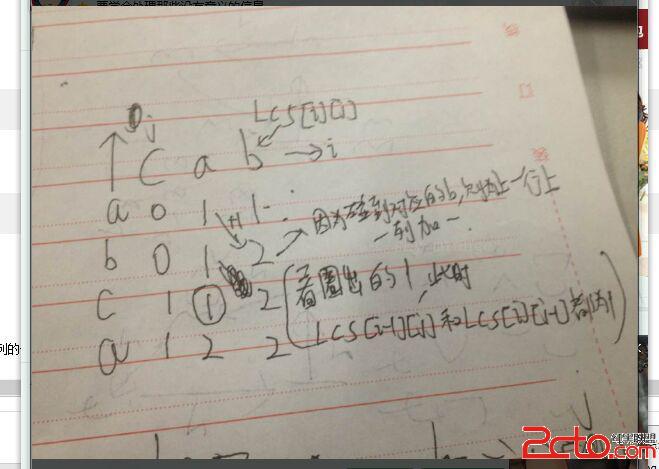 j
LCS[i][j]
C a b → i
a 0 1 1
+1
b 0 1 2 → 因为碰到对应的b,则为上一行上
一列加一.
c 1 1 2 (看圈出的1,此时
LCS[i-1][j]和LCS[i][j-1]都为1)
a 1 2 2
2cto.com
红黑联盟